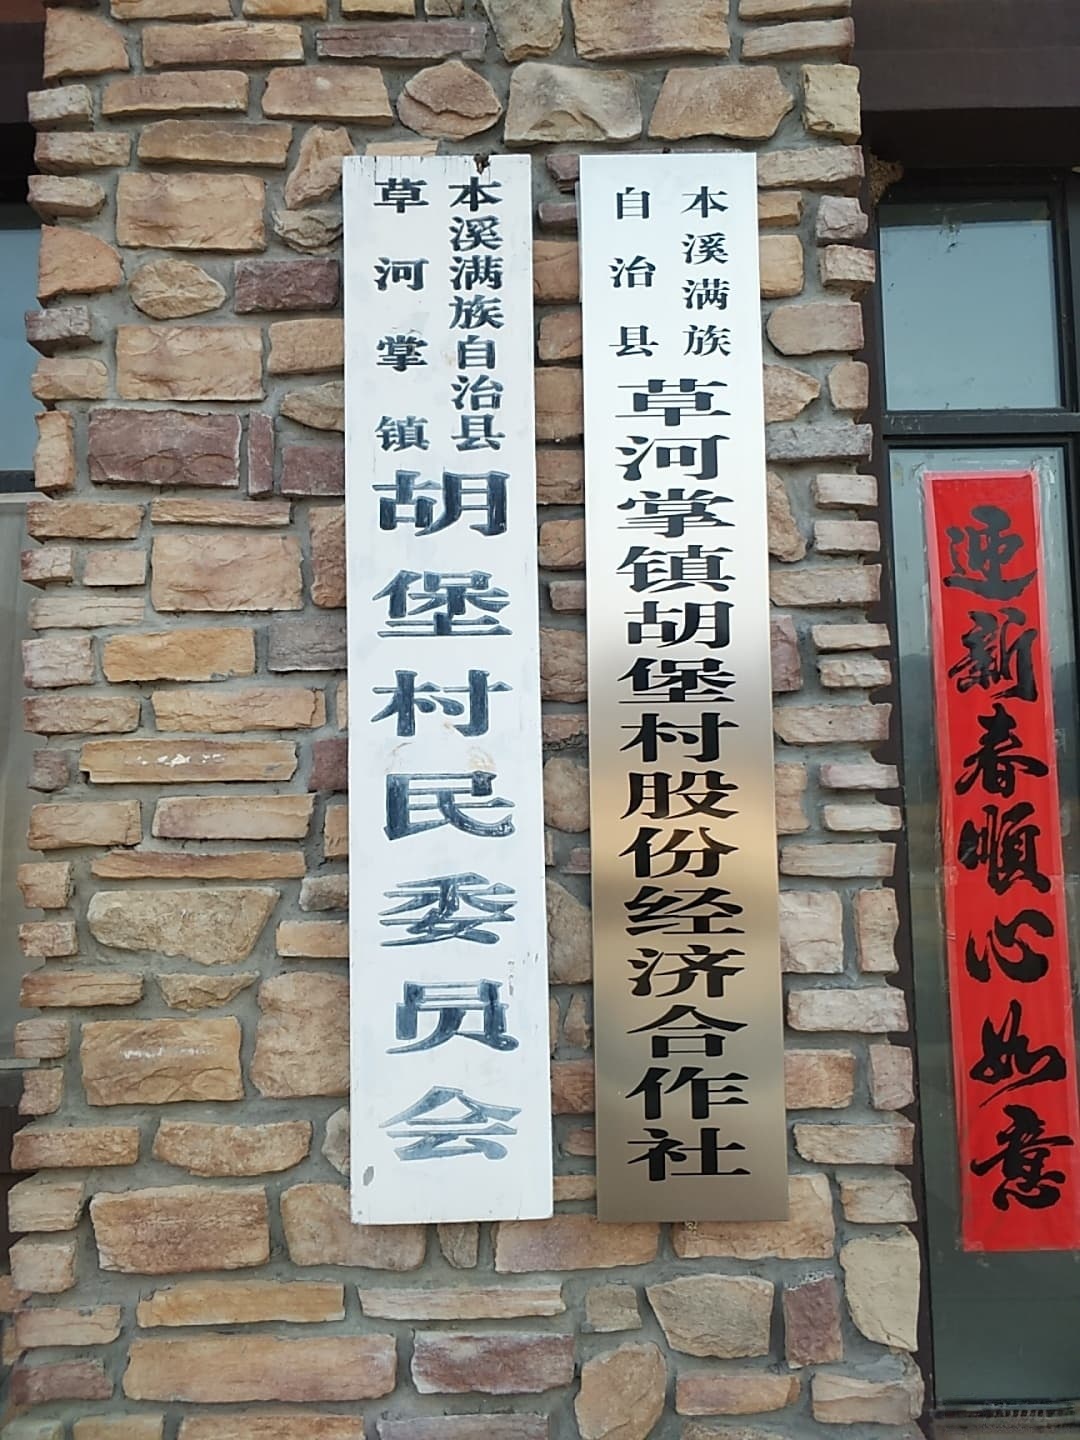 本溪满族自治县
草河掌镇
胡堡村民委员会
本溪满族
自治县
草河掌镇胡堡村股份经济合作社
迎新春顺心如意